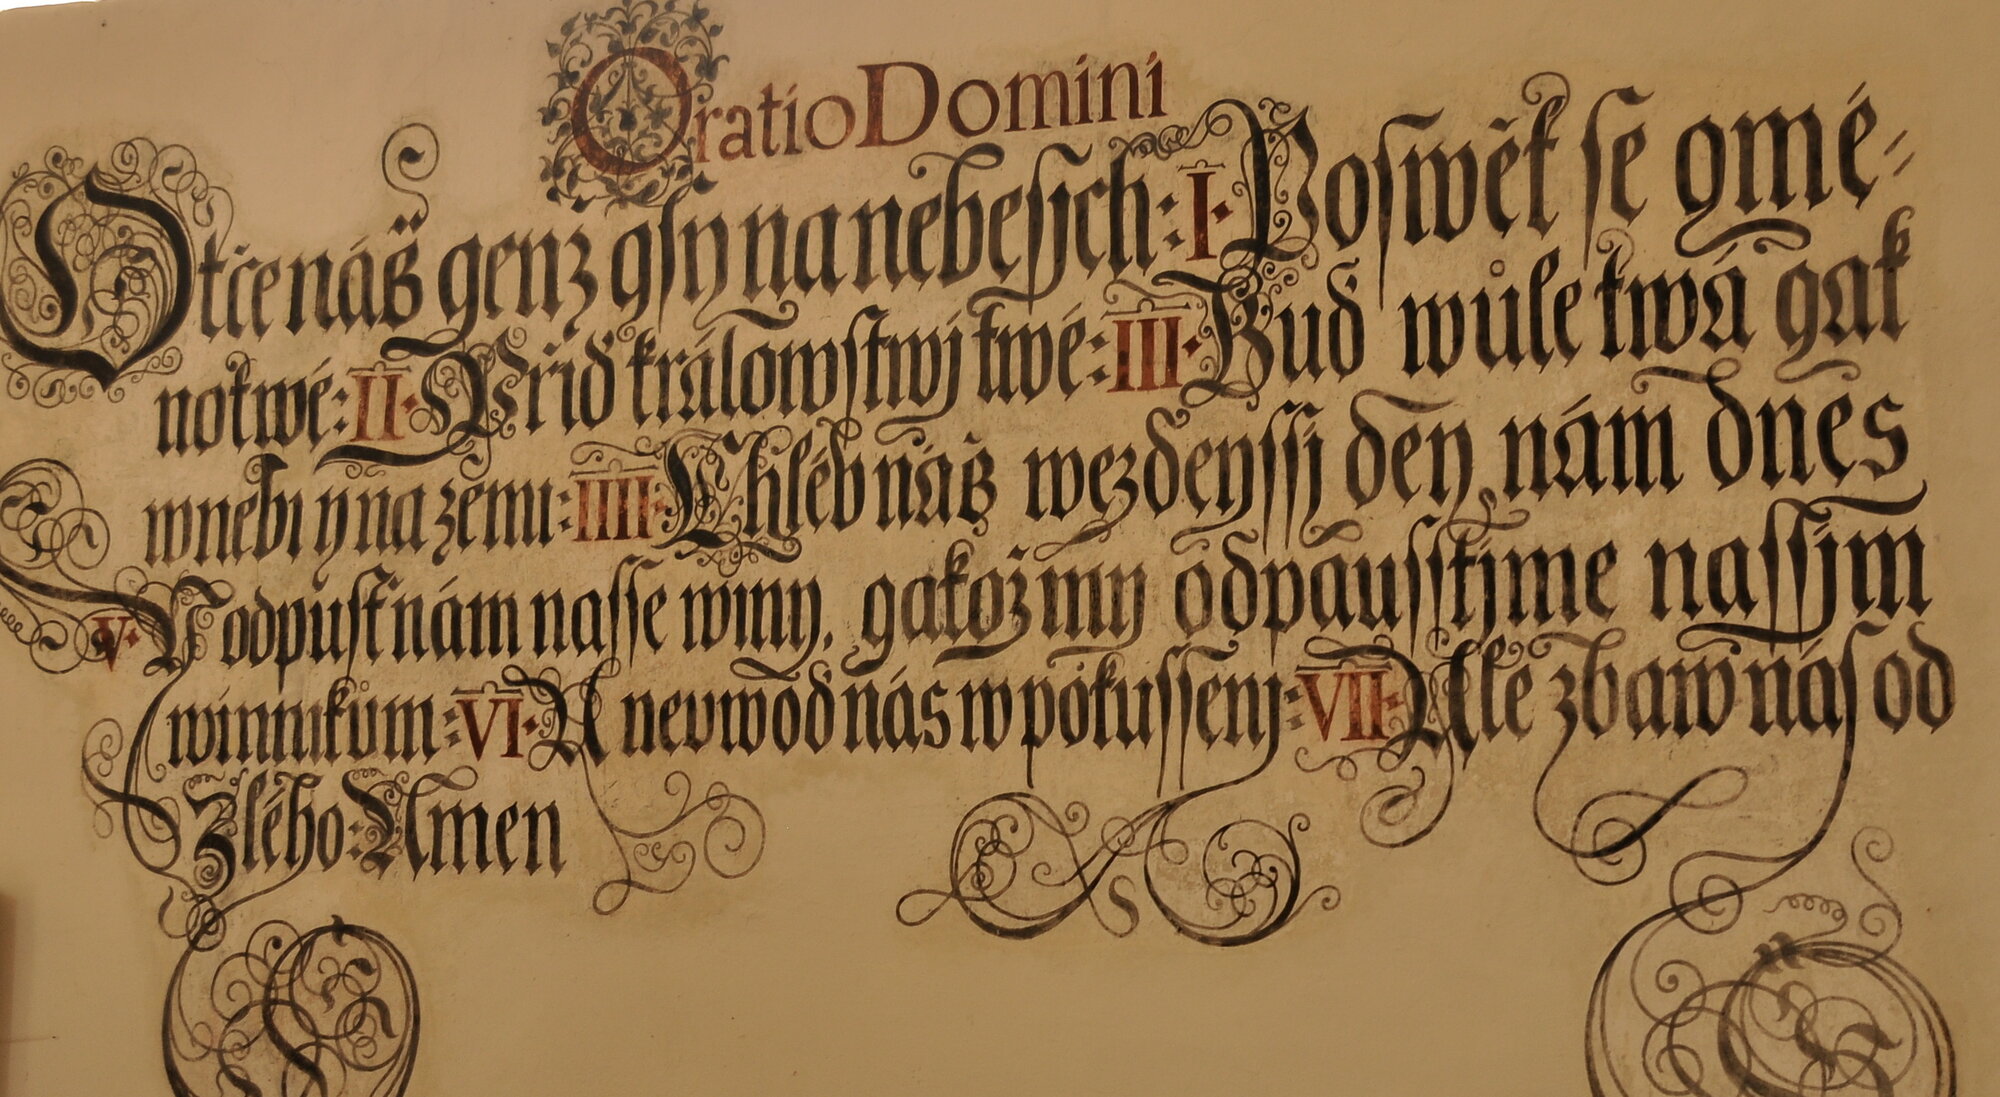 Oratio Domini
Otče náß genž gsy na nebesych: I. Poswět se gmé=
no twé: II. Přiď králowstwj twé: III. Buď wůle twá gak
w nebi y na zemi: IIII. Chléb náß wezdeyssj dey nám dnes
V. Y odpust nám nasse winy, gakož my odpausstjme nassjm
winnikům: VI. A neuwoď nás w pokussenj: VII. Ale zbaw nás od
Zlého: Amen